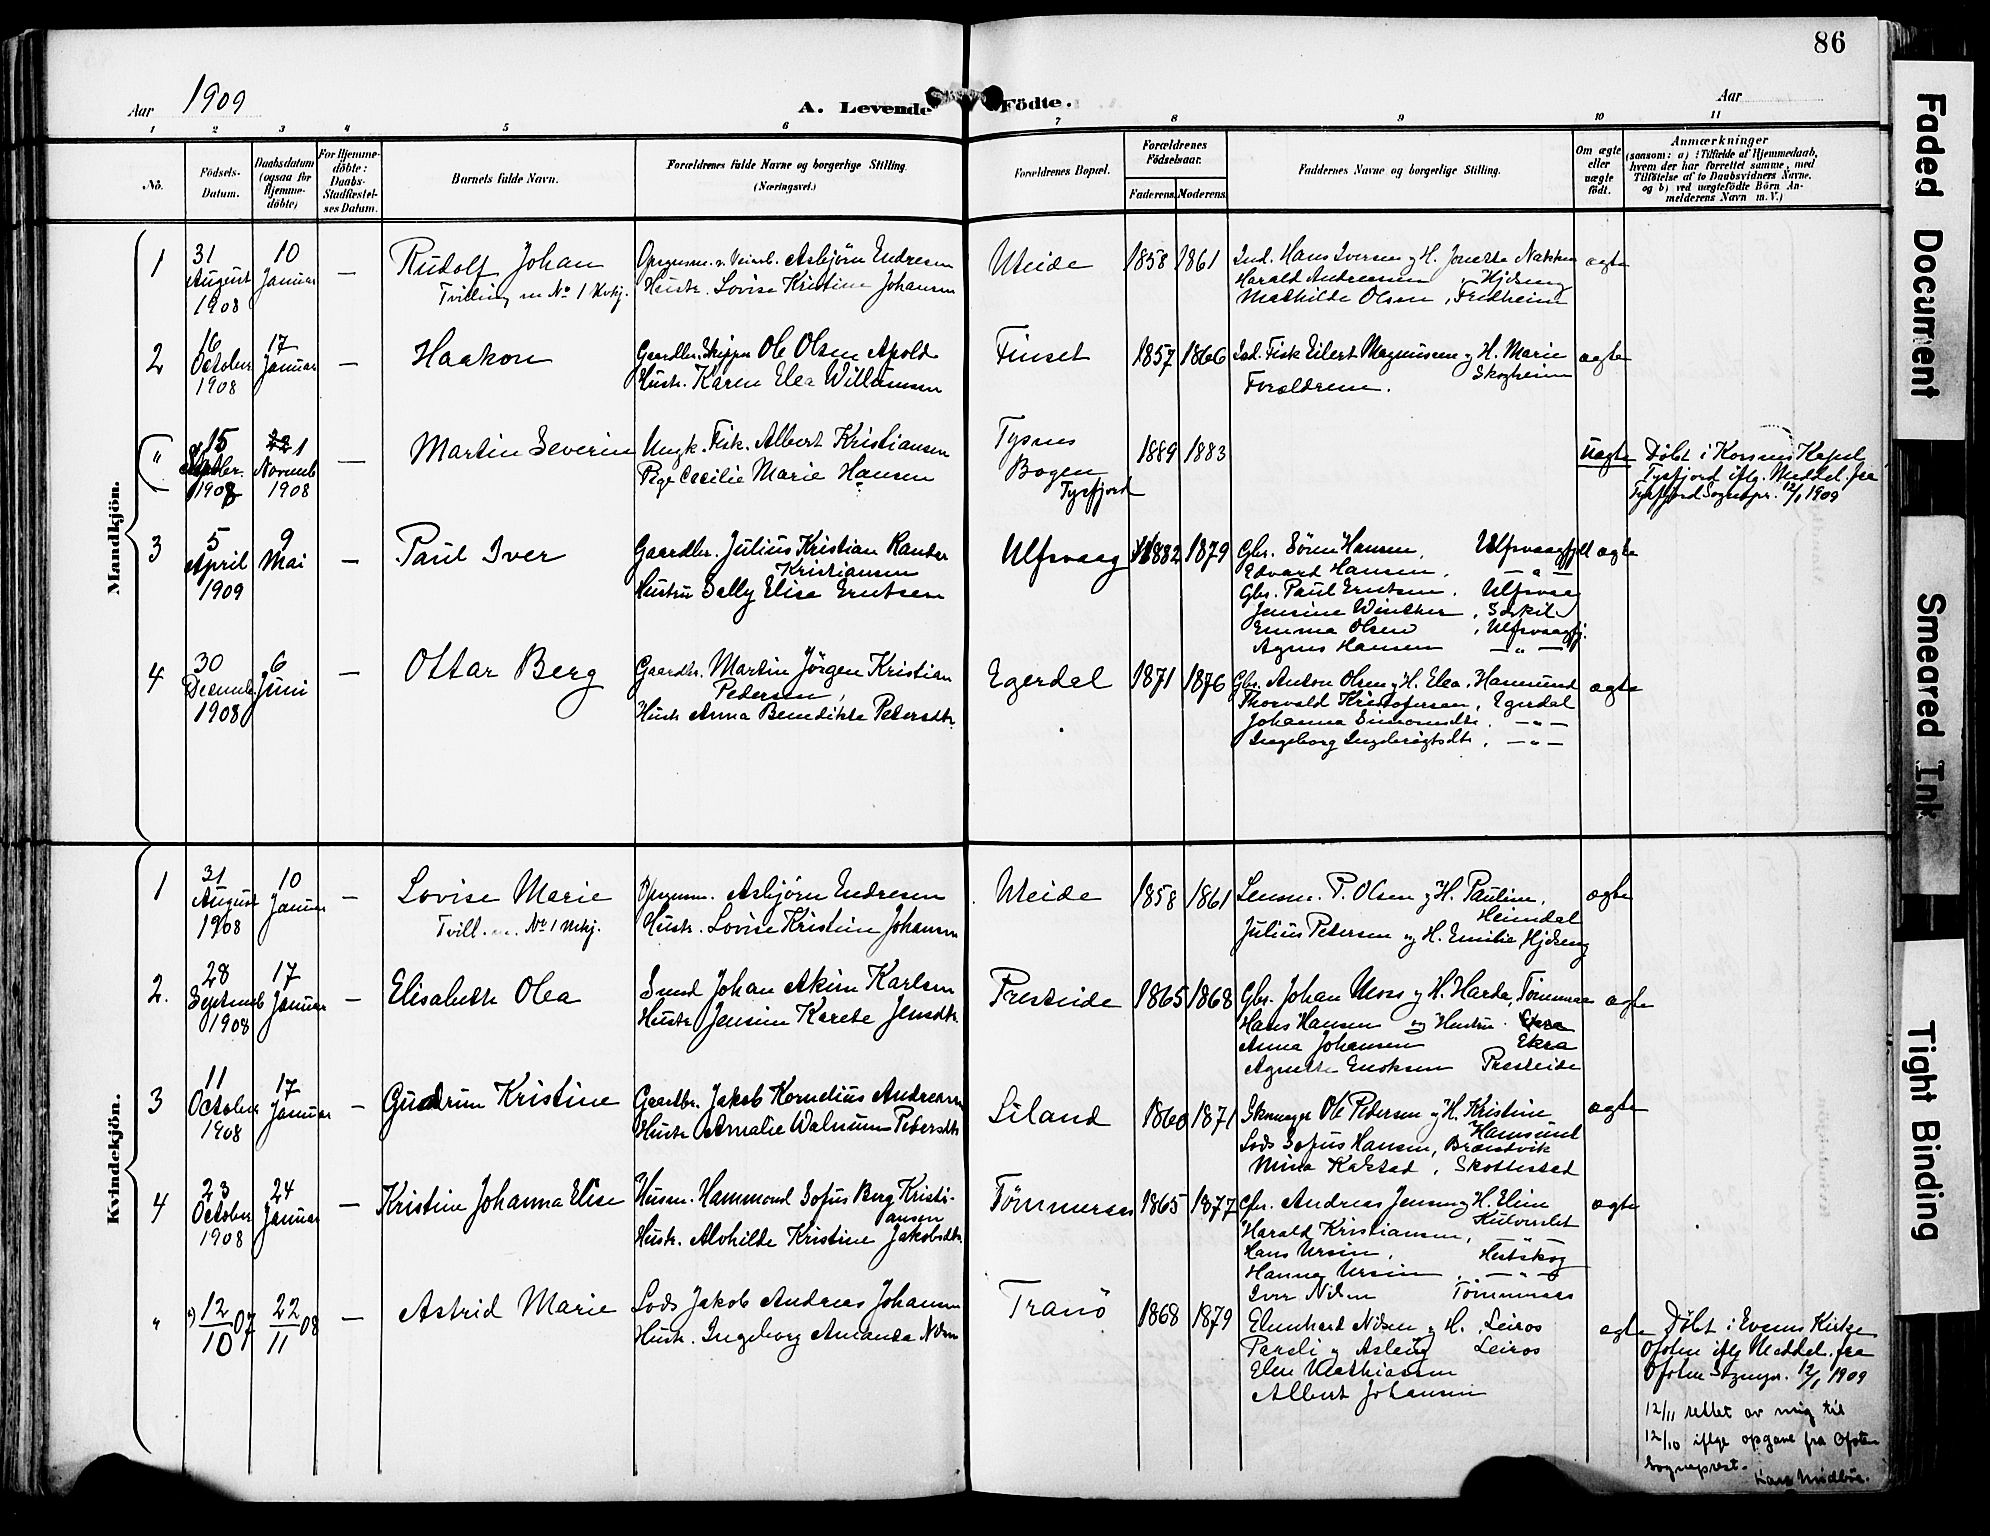 86
Aar 1909
A. Levende Födte.
Aar
1 2 3 4 5 6 7 8 9 10 11
No.
Födsels-
Datum.
Daabsdatum
(ogsaa for
Hjemme-
döbte)
For Hjemme-
döbte:
Daabs-
Stadfæstel-
ses Datum.
Barnets fulde Navn.
Forældrenes fulde Navne og borgerlige Stilling
(Næringsvei.)
Forældrenes Bopæl.
Forældrenes
Födselsaar.
Faderens. Moderens.
Faddernes Navne og borgerlige Stilling.
Om ægte
eller
uægte
födt.
Anmærkninger
(saasom: a) i Tilfælde af Hjemmedaab,
hvem der har forrettet samme, med
Tilföielse af to Daabsvidners Navne.
og b) ved uægtefödte Börn An-
melderens Navn m. V.)
Mandkjön.
1
31
August
1908
10
Januar
—
Rudolf Johan
Tvilling m No 1 Kvkj.
Asbjörn Endresen
Hustr. Lovise Kristine Johansen
Uteide
1858 1861
Ind. Hans Iversen og H. Jonette Nakken
Harald Andreassen
Mathilde Olsen, Fredheim
ægte
2
16
October
1908
17
Januar
—
Haakon
Gaardbr. Skipper Ole Olsen Apold
Hustr. Karen Elea Willumsen
Finset
1857 1866
Ind. Fisk Eilert Magnussen og H. Marie
Skogheim
Forældrene.
ægte
"
15
1908
1
Novemb
1908
—
Martin Severin
Ungk. Fisk. Albert Kristiansen
Pige Cecilie Marie Hansen
Tysnes
Bogen
Tysfjord
1889 1883
uægte
Döbt i Korsnes Kapel
Tysfjord iflg. Meddel. fra
Tysfjord Sognepr. 12/1 1909
3
5
April
1909
9
Mai
—
Paul Iver
Gaardbr. Julius Kristian Rander
Kristiansen
Hustru Sally Elise Erntsen
Ulfsvaag
1882 1879
Gbr. Sören Hansen, Ulfsvaagfjell
Edvard Hansen, — " —
Gbr. Paul Erntsen, Ulfsvaag
Jensine Winther,
Emma Olsen, Ulfsvaagfj.
Agnes Hansen — " —
ægte
4
30
Decemb.
1908
6
Juni
—
Ottar Berg
Gaardbr. Martin Jörgen Kristian
Pedersen,
Hustr Anna Benedikte Petersdtr.
Egerdal
1871 1876
Gbr. Anton Olsen og H. Elea, Hamsund
Thorvald Kristofersen, Egerdal
Johanna Simonsdtr. — " —
Ingeborg Ingebrigtsdtr. — " —
ægte
Kvindekjön.
1
31
August
1908
10
Januar
—
Lovise Marie
Tvill. m. No 1 Mkj.
Asbjörn Endresen
Hustr. Lovise Kristine Johansen
Uteide
1858 1861
Lensm. P. Olsen og H. Pauline,
Heimdal
Julius Petersen og H. Emilie
ægte
2.
28
Septemb
1908
17
Januar
—
Elisabeth Olea
Smed Johan Akim Karlsen
Hustr Jensine Karete Jensdtr.
Presteide
1865 1868
Gbr. Johan Moss og H. Harda, Tömmeraas
Hans Hansen og Hustru.
Anna Johansen Ekra
Agnethe Enoksen Presteide
ægte
3
11
October
1908
17
Januar
—
Gudrun Kristine
Gaardbr. Jakob Kornelius Andreassen
Hustr Amalie Walnum Petersdtr
Liland
1860 1871
Skomager Ole Pedersen og H. Kristine
Hamsund
Lods Sofus Hansen, Brændvik
Mina Karstad, Skottestad
ægte
4
23
October
1908
24
Januar
—
Kristine Johanna Elise
Husm. Hammond Sofus Berg Kristi-
ansen
Hustr. Alvhilde Kristine Jakobsdtr.
Tömmeraas
1865 1877
Gbr. Andreas Jensen og H. Eline
Harald Kristiansen,
Hans Ursin,
Hanna Ursin — " —
Iver Nilsen Tömmeraas
ægte
"
12/10 07
22/11 08
—
Astrid Marie
Lods Jakob Andreas Johansen
Hustr. Ingeborg Amanda Nilsen
Tranö
1868 1879
Edmhard Nilsen og H. Leiros
Leiros
Elen Mathiassen
Albert Johansen
ægte
Döbt i Evenes Kirke
Ofoten iflg Meddel. fra
Ofoten Sognepr. 12/1 1909
12/11 rettet av mig til
12/10 iflge opgave fra Ofoten
Sogneprest.
Faded Document
Smeared Ink
Tight Binding